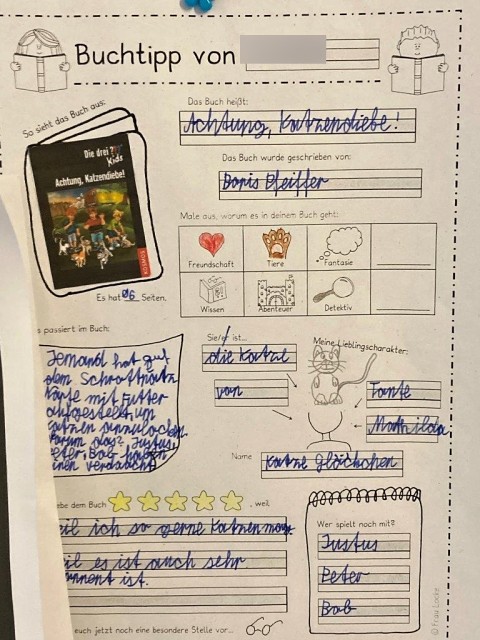 Buchtipp von
So sieht das Buch aus:
Das Buch heißt:
Achtung, Katzendiebe!
Das Buch wurde geschrieben von:
Boris Pfeiffer
Die drei ???
Kids
Achtung, Katzendiebe!
KOSMOS
Male aus, worum es in deinem Buch geht:
Freundschaft Tiere Fantasie
Wissen Abenteuer Detektiv
Es hat 96 Seiten.
s passiert im Buch:
Jemand hat auf
dem Schrottplatz
Körbe mit Futter
aufgestellt, um
Katzen anzulocken.
Warum das? Justus,
Peter, Bob haben
einen Verdacht
Sie/er ist...
die Katze
von
Meine Lieblingscharakter:
Tante
Mathilda
Name Katze Glöckchen
ebe dem Buch , weil
eil ich so gerne Katzen mag.
eil es ist auch sehr
nnent ist.
Wer spielt noch mit?
Justus
Peter
Bob
euch jetzt noch eine besondere Stelle vor...
© Frau Locke